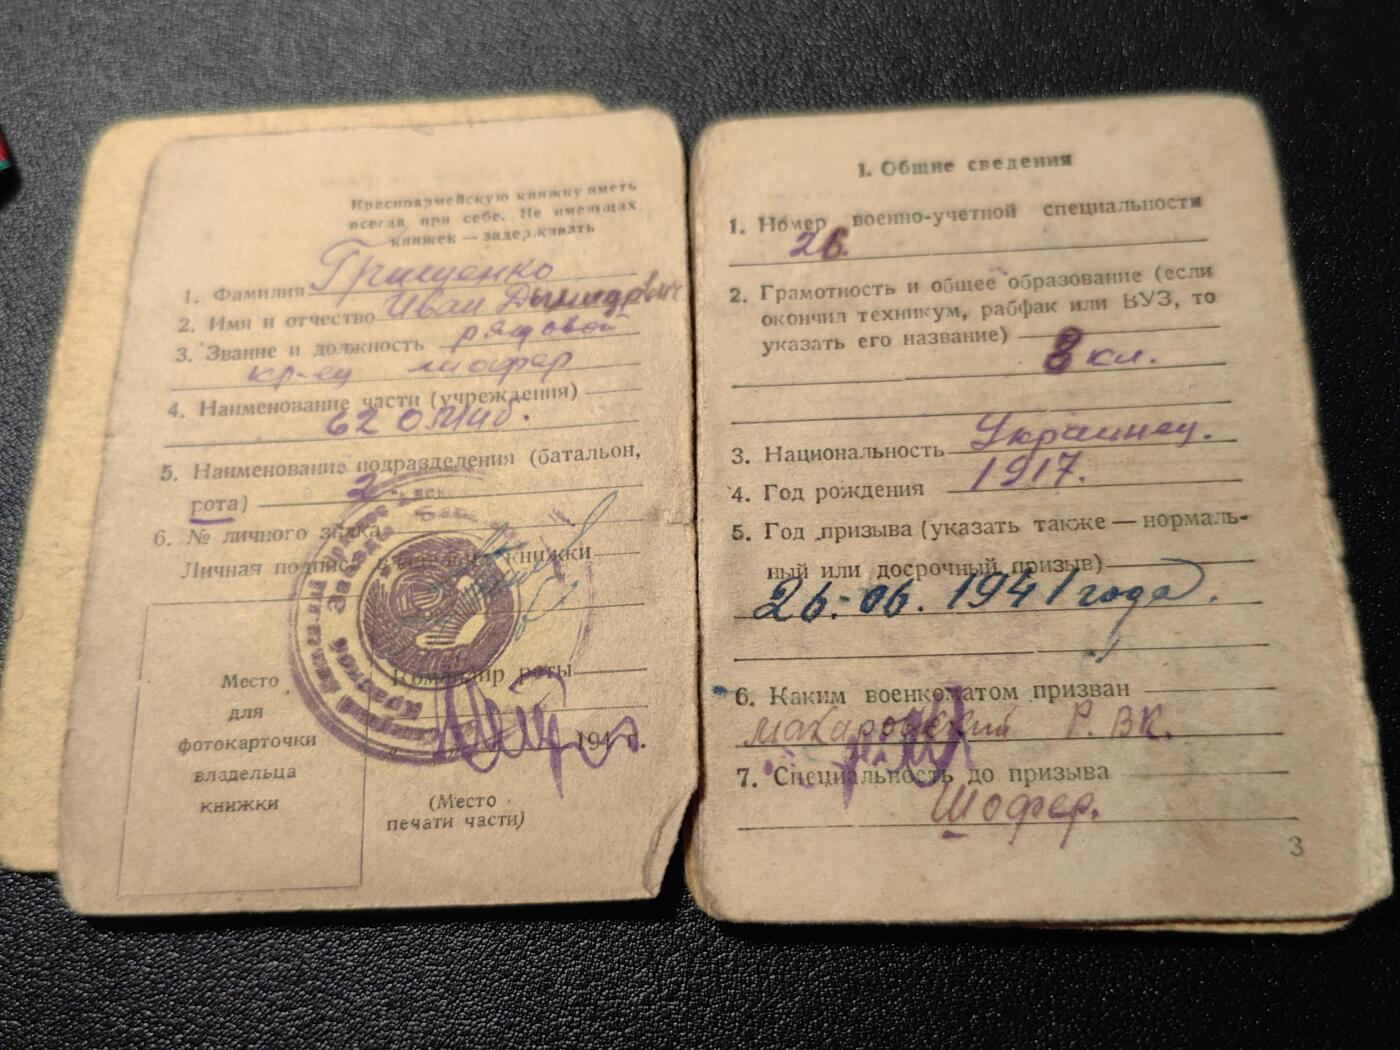 Красноармейскую книжку иметь
всегда при себе. Не имеющих
книжек — задерживать
1. Фамилия Грищенко
2. Имя и отчество Иван
3. Звание и должность рядовой
кр-ец шофер
4. Наименование части (учреждения)
62
5. Наименование подразделения (батальон,
2.
рота)
6. № личного знака
Личная подпись владельца книжки
Командир роты
194 г.
Место
для
фотокарточки
владельца
книжки
(Место
печати части)
Красной Звезды
I. Общие сведения
1. Номер военно-учетной специальности
26.
2. Грамотность и общее образование (если
окончил техникум, рабфак или ВУЗ, то
указать его название)
8 кл.
3. Национальность Украинец.
4. Год рождения 1917.
5. Год призыва (указать также — нормаль-
ный или досрочный призыв)
26.06.1941 года.
6. Каким военкоматом призван
Макаровский Р.ВК.
7. Специальность до призыва
Шофер.
3